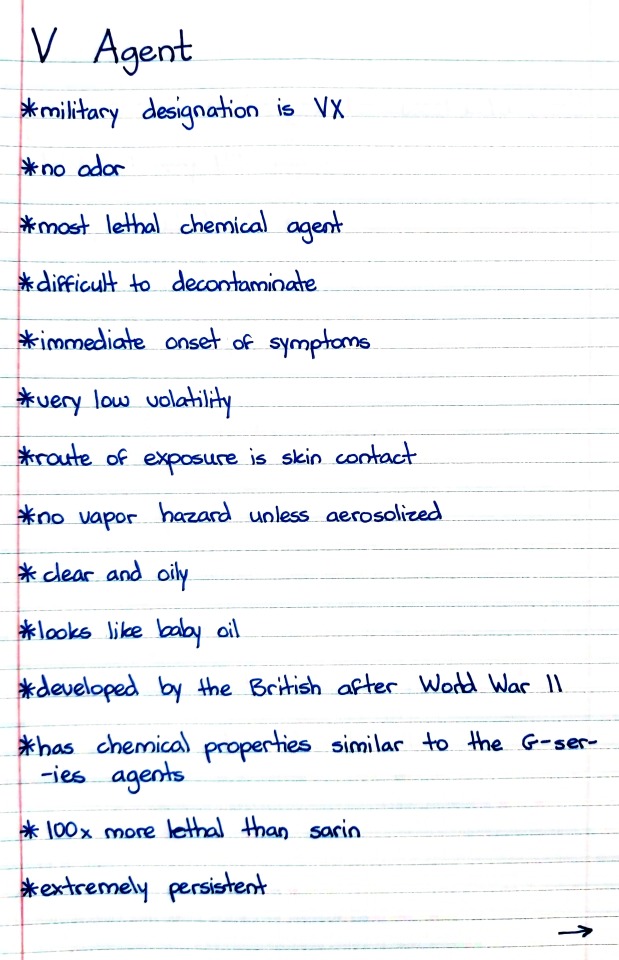 V Agent
*military designation is VX
*no odor
*most lethal chemical agent
*difficult to decontaminate
*immediate onset of symptoms
*very low volatility
*route of exposure is skin contact
*no vapor hazard unless aerosolized
* clear and oily
*looks like baby oil
*developed by the British after World War II
*has chemical properties similar to the G-ser-
-ies agents
* 100x more lethal than sarin
*extremely persistent
→